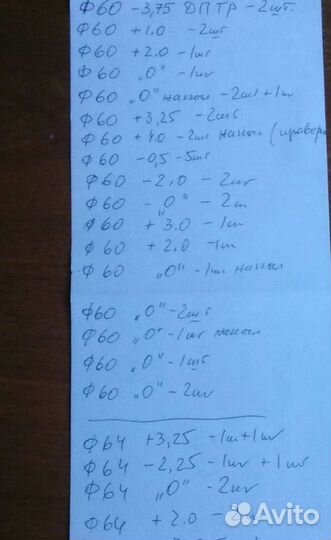 Ф60 -3,75 ДПТР -2шт.
Ф60 +1.0 -2шт
Ф60 +2.0 -1шт
Ф60 „0" -1шт
Ф60 „0" напыл. -2шт+1шт
Ф60 +3,25 -2шт
Ф60 +4.0 -2шт напыл (провер
Ф60 -0,5 -5шт
Ф60 -2.0 -2шт
Ф60 -„0" -2шт
Ф60 +3.0 -1шт
Ф60 +2.0 -1шт
Ф60 „0" -1шт напыл
Ф60 „0" -2шт
Ф60 „0" -1шт напыл
Ф60 „0" -1шт
Ф60 „0" -2шт
Ф64 +3,25 -1шт+1шт
Ф64 -2,25 -1шт +1шт
Ф64 „0" -2шт
Ф64 +2.0
Avito